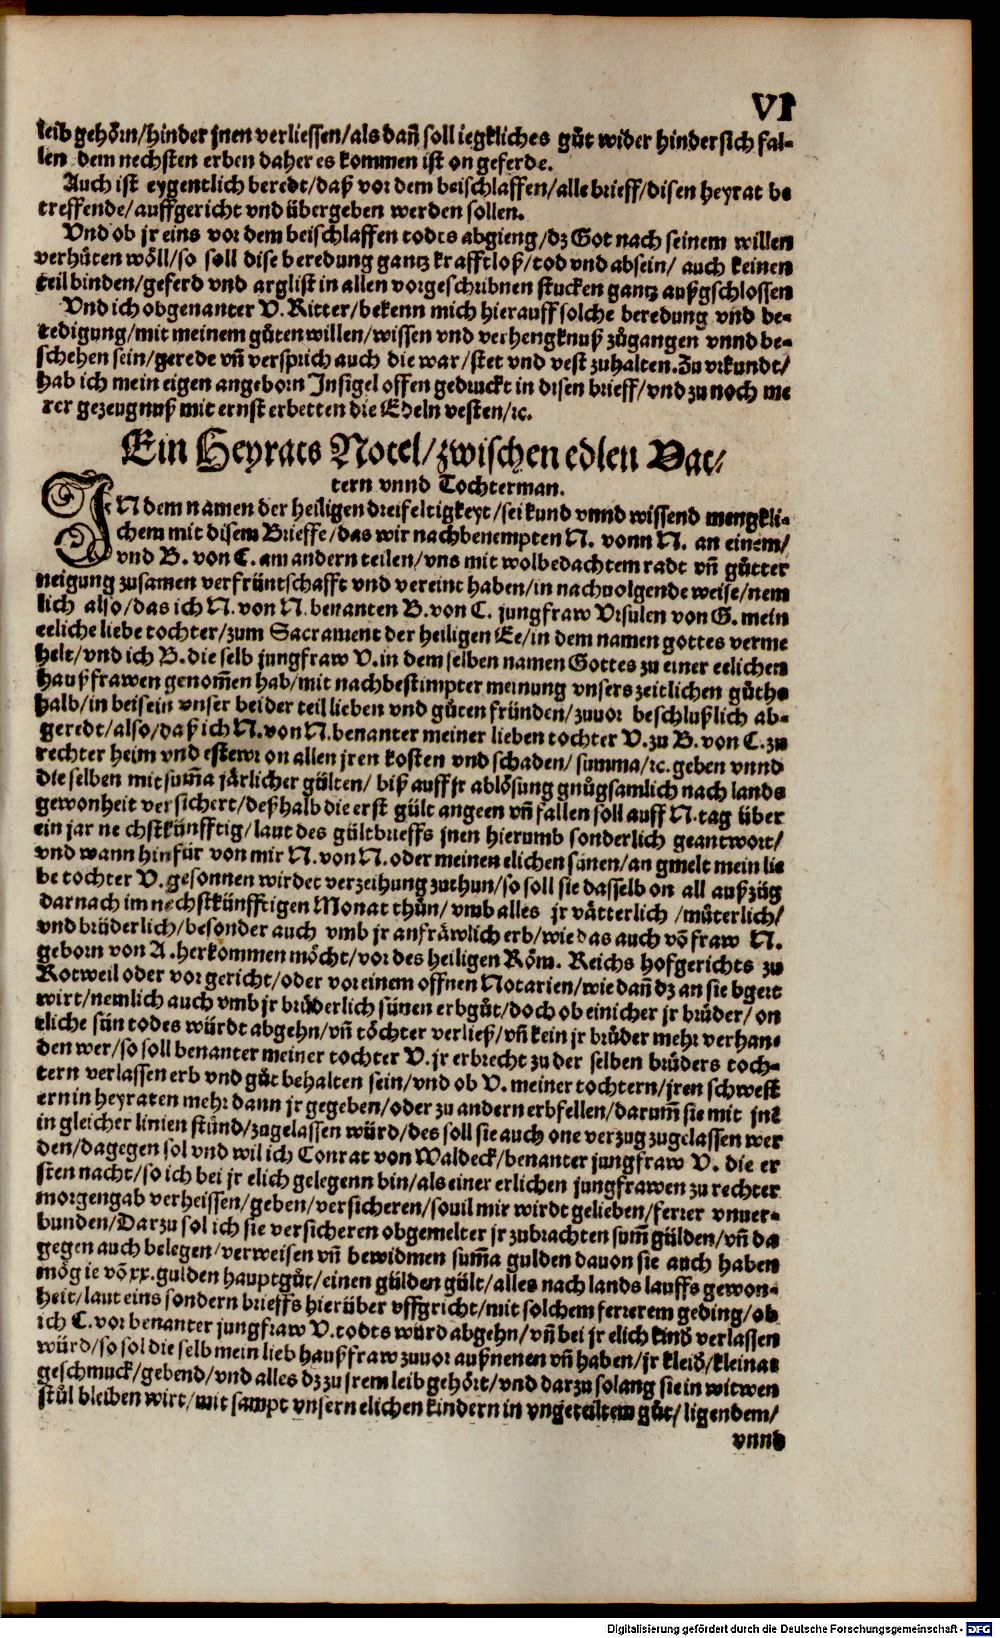 VI
leib gehörn/hinder jnen verliessen/als dañ soll iegkliches gůt wider hinder sich fal-
len dem nechsten erben daher es kommen ist on geferde.
Auch ist eygentlich beredt/daß vor dem beischlaffen/alle brieff/disen heyrat be
treffende/auffgericht vnd übergeben werden sollen.
Vnd ob jr eins vor dem beischlaffen todts abgieng/dz Got nach seinem willen
verhüten wöll/so soll dise beredung gantz krafftloß/tod vnd absein/ auch keinen
teil binden/geferd vnd arglist in allen vorgeschribnen stucken gantz außgschlossen
Vnd ich obgenanter V. Ritter/bekenn mich hierauff solche beredung vnd be-
tedigung/mit meinem gůten willen/wissen vnd verhengknuß zůgangen vnnd be-
schehen sein/gerede vñ versprich auch die war/stet vnd vest zuhalten. Zu vrkundt/
hab ich mein eigen angeborn Insigel offen gedruckt in disen brieff/vnd zu noch me
rer gezeugnuß mit ernst erbetten die Edeln vesten/ꝛc.
Ein Heyrats Notel/zwischen edlen Vat-
tern vnnd Tochterman.
IN dem namen der heiligen dreifeltigkeyt/sei kund vnnd wissend mengkli-
chem mit disem Brieffe/das wir nachbenempten N. vonn N. an einem/
vnd B. von C. am andern teilen/vns mit wolbedachtem radt vñ gůtter
neigung zusamen verfrüntschafft vnd vereint haben/in nachuolgende weise/nem
lich also/das ich N. von N. benanten B. von C. jungfraw Vrsulen von G. mein
eeliche liebe tochter/zum Sacrament der heiligen Ee/in dem namen gottes verme
helt/vnd ich B. die selb jungfraw V. in dem selben namen Gottes zu einer eelichen
haußfrawen genom̃en hab/mit nachbestimpter meinung vnsers zeitlichen gůths
halb/in beisein vnser beider teil lieben vnd gůten fründen/zuuor beschlußlich ab-
geredt/also/daß ich N. von N. benanter meiner lieben tochter V. zu B. von C. zu
rechter heim vnd estewr on allen jren kosten vnd schaden/ summa/ꝛc. geben vnnd
die selben mit sum̃a järlicher gülten/ biß auff jr ablösung gnůgsamlich nach lands
gewonheit versichert/deßhalb die erst gült angeen vñ fallen soll auff N. tag über
ein jar ne chstkünfftig/laut des gültbrieffs jnen hierumb sonderlich geantwort/
vnd wann hinfür von mir N. von N. oder meinen elichen sünen/an gmelt mein lie
be tochter V. gesonnen wirdet verzeihung zuthun/so soll sie dasselb on all außzüg
darnach im nechstkünfftigen Monat thůn/vmb alles jr vätterlich /můterlich/
vnd brůderlich/besonder auch vmb jr anfräwlich erb/wie das auch võ fraw N.
geborn von A. herkommen möcht/vor des heiligen Röm. Reichs hofgerichts zu
Rotweil oder vor gericht/oder vor einem offnen Notarien/wie dañ dz an sie bgert
wirt/nemlich auch vmb jr brůderlich sünen erbgůt/doch ob einicher jr brůder/ on
eliche sün todes würdt abgehn/vñ töchter verließ/vñ kein jr brůder mehr verhan-
den wer/so soll benanter meiner tochter V. jr erbrecht zu der selben brůders toch-
tern verlassen erb vnd gůt behalten sein/vnd ob V. meiner tochtern/jren schwest
ern in heyraten mehr dann jr gegeben/oder zu andern erbfellen/darum̃ sie mit jnẽ
in gleicher linien stünd/zugelassen würd/des soll sie auch one verzug zugelassen wer
den/dagegen sol vnd wil ich Conrat von Waldeck/benanter jungfraw V. die er
sten nacht/so ich bei jr elich gelegenn bin/als einer erlichen jungfrawen zu rechter
morgengab verheissen/geben/versicheren/souil mir wirdt gelieben/ferrer vnuer-
bunden/Darzu sol ich sie versicheren obgemelter jr zubrachten sum̃ gülden/vñ da
gegen auch belegen/verweisen vñ bewidmen sum̃a gulden dauon sie auch haben
mög ie võ xx. gulden hauptgůt/einen gülden gült/alles nach lands lauffs gewon-
heit/laut eins sondern brieffs hierüber vffgricht/mit solchem ferrerem geding/ob
ich C. vor benanter jungfraw V. todts würd abgehn/vñ bei jr elich kind verlassen
würd/so sol die selb mein lieb haußfraw zuuor außnenen vñ haben/jr kleid/kleinat
geschmuck/gebend/vnd alles dz zu jrem leib gehört/vnd darzu solang sie in witwen
stůl bleiben wirt/mit sampt vnsern elichen kindern in vngeteiltem gůt/ligendem/
vnnd
Digitalisierung gefördert durch die Deutsche Forschungsgemeinschaft - DFG